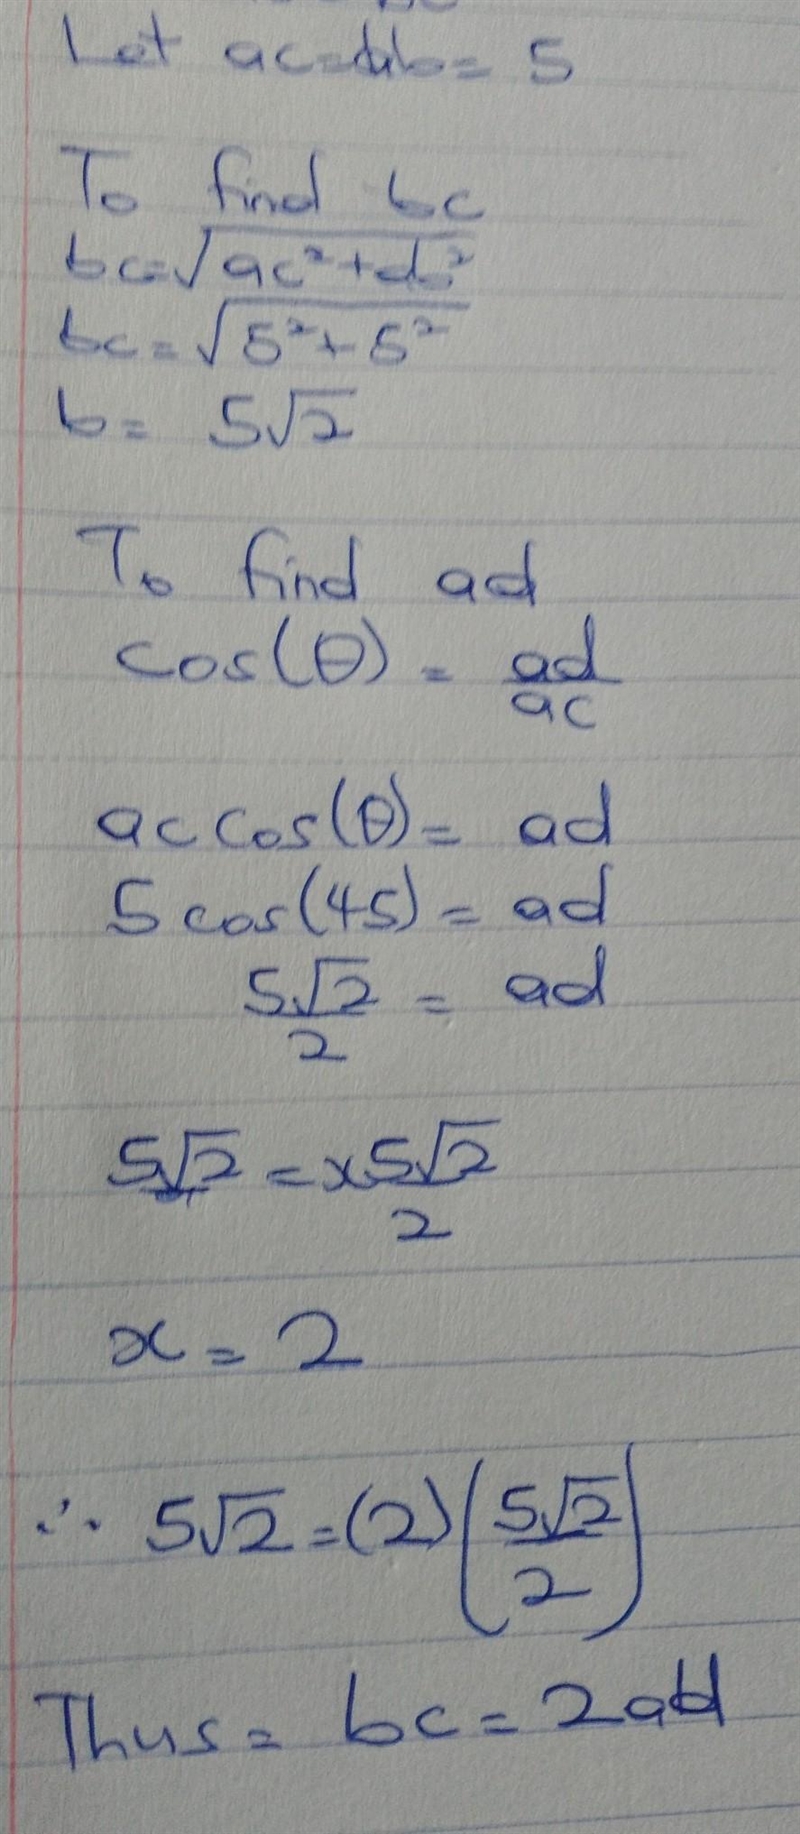 Let ac=ab= 5
To find bc
bc=√ac²+ab²
bc=√5²+5²
b= 5√2
To find ad
cos(θ) = ad/ac
ac cos(θ)= ad
5 cos(45) = ad
5√2/2 = ad
5√2 = x5√2/2
x = 2
∴ 5√2=(2)(5√2/2)
Thus = bc=2ad